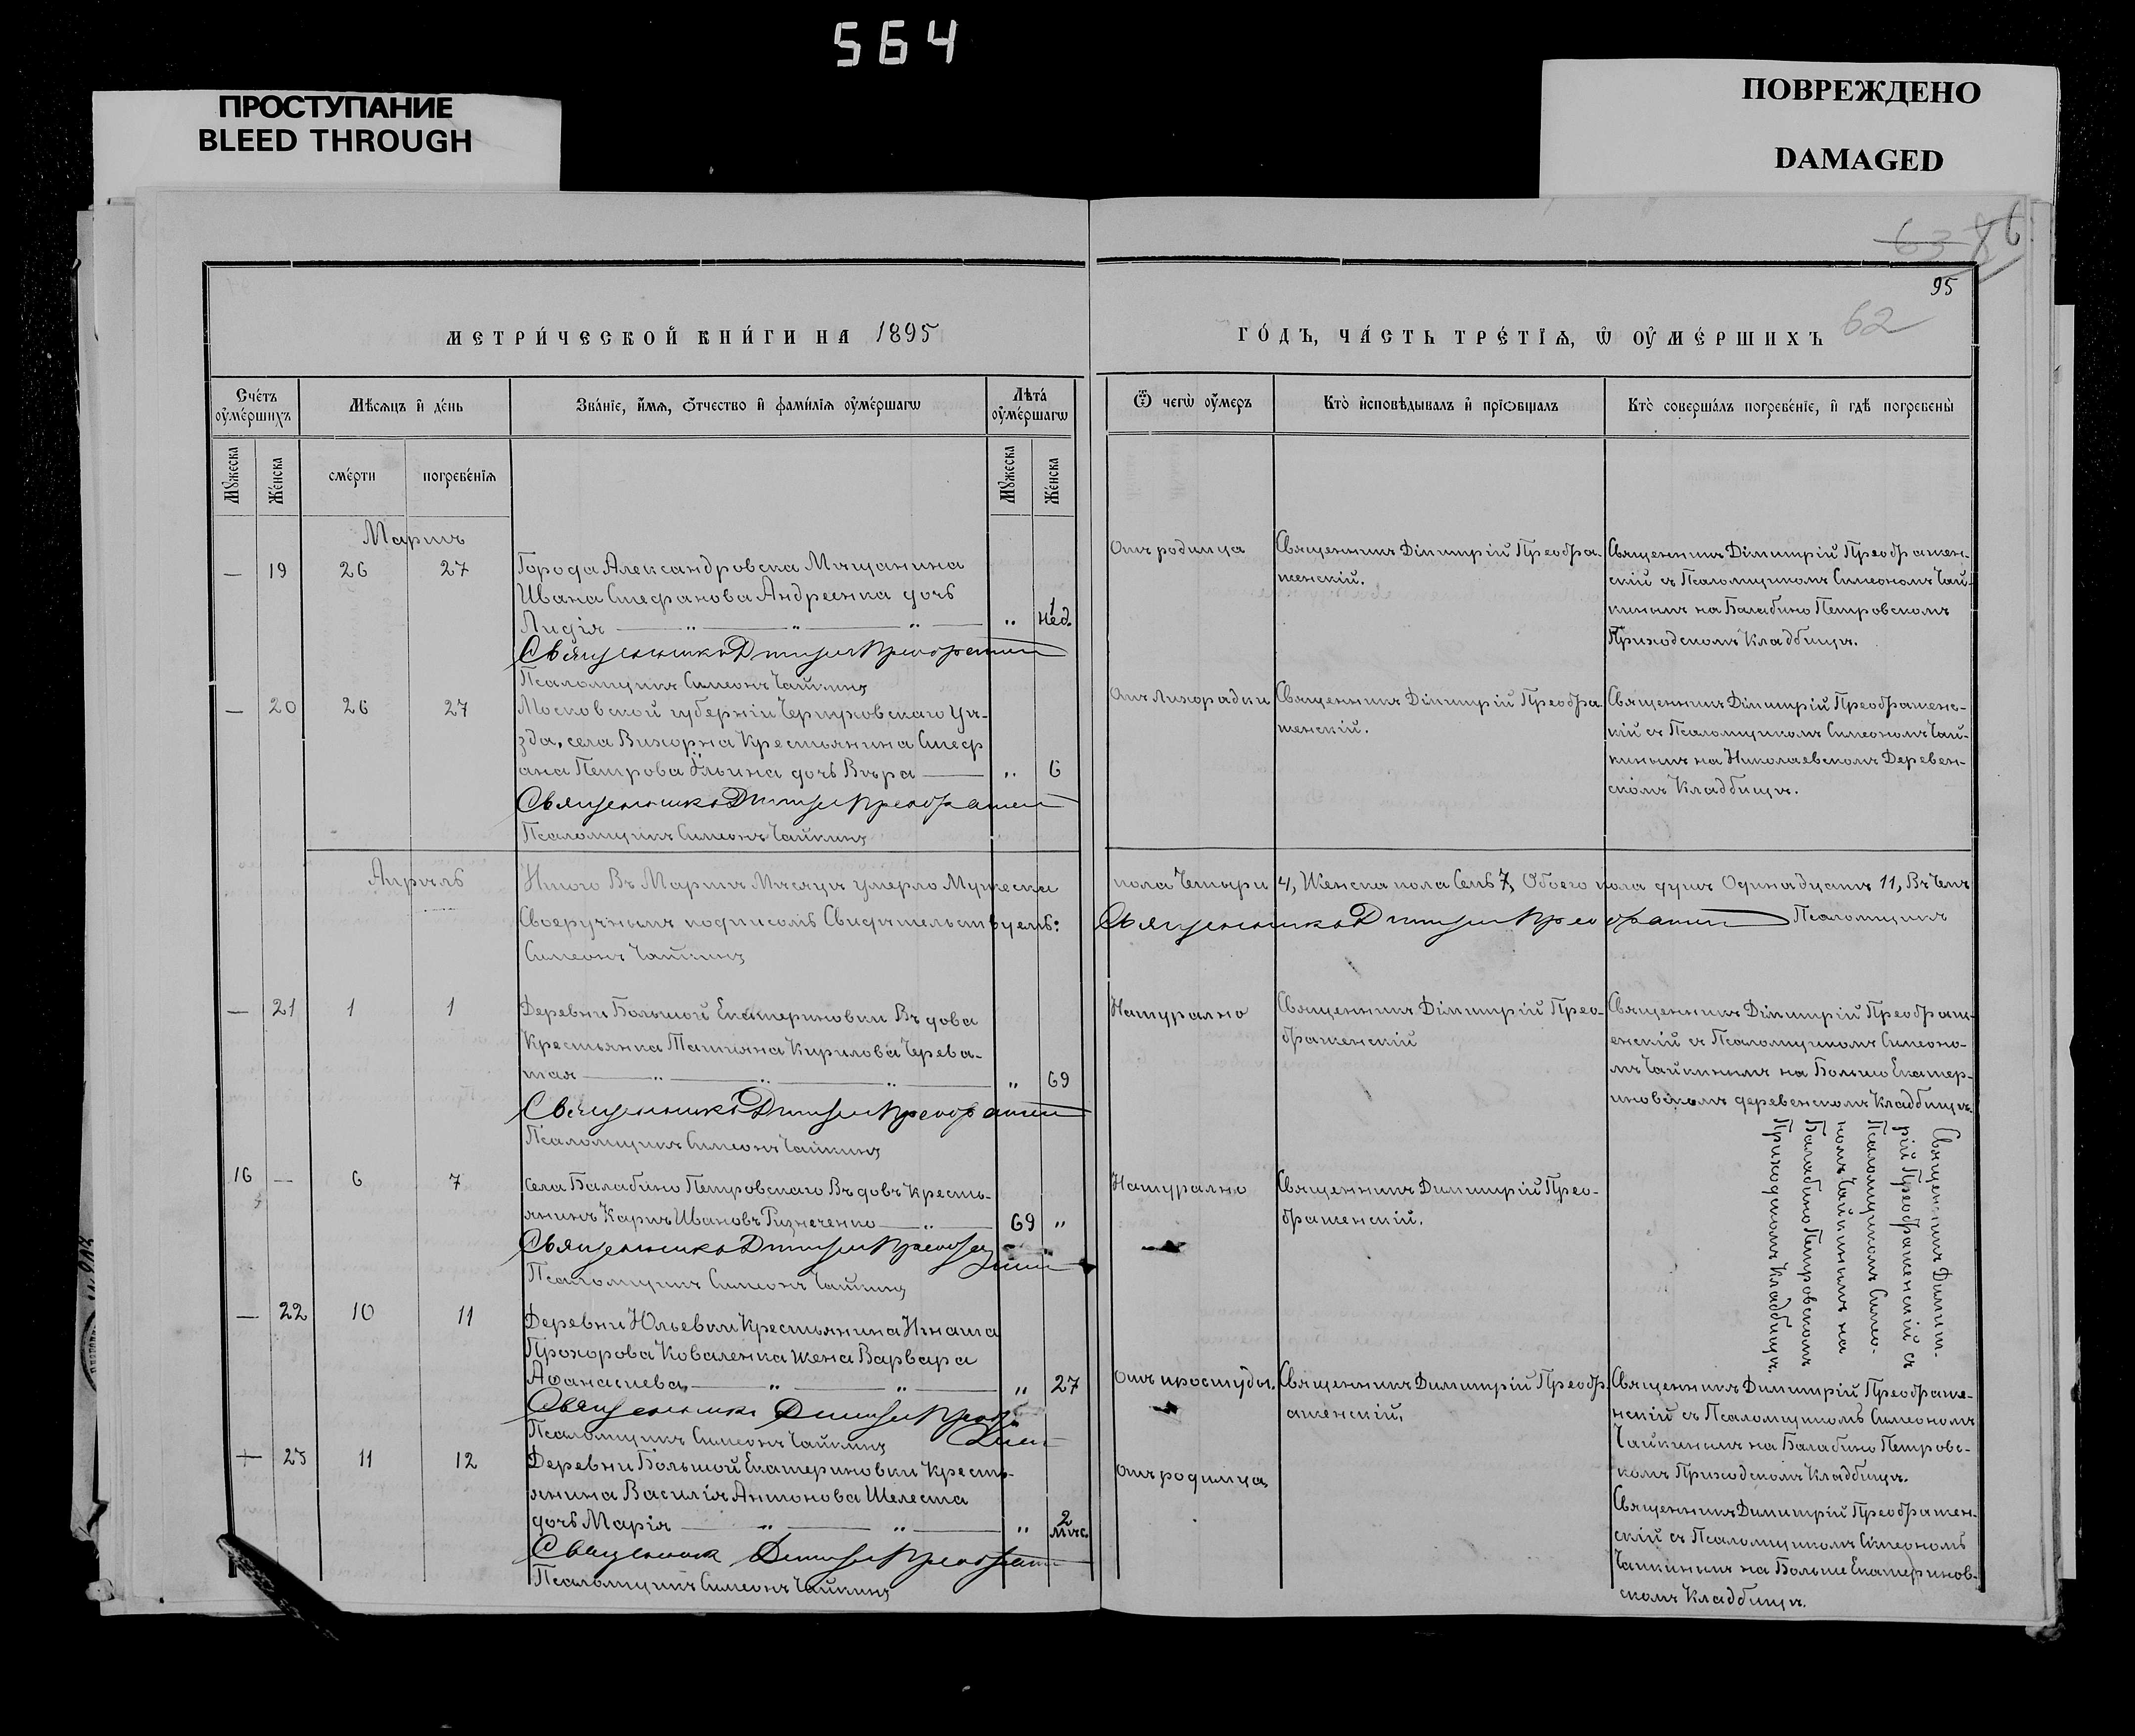 564
ПРОСТУПАНИЕ
BLEED THROUGH
ПОВРЕЖДЕНО
DAMAGED
95
62
МЕТРИ́ЧЕСКОЙ КНИ́ГИ НА 1895
ГО́ДЪ, ЧА́СТЬ ТРЕ́ТЇѦ, Ѡ҆ ОУ҆МЕ́РШИХЪ
Сче́тъ оу҆ме́ршихъ
Мѣ́сѧцъ и҆ де́нь
Зва́нїе, и҆́мѧ, ѻ҆́тчество и҆ фами́лїѧ оу҆ме́ршагѡ
Лѣта̀ оу҆ме́ршагѡ
Ѿ чегѡ̀ оу҆́меръ
Кто̀ и҆сповѣ́дывалъ и҆ прїѡбща́лъ
Кто̀ соверша́лъ погребе́нїе, и҆ гдѣ̀ погребены̀
Мꙋ́жеска
Же́нска
сме́рти
погребе́нїѧ
Мꙋ́жеска
Же́нска
Мартъ
— 19 26 27
Города Александровска Мѣщанина
Ивана Стефанова Андреенка дочь
Лидія — „ — „ — „ — „ 1 нед.
Священникъ Димитрій Преображен
Псаломщикъ Симеонъ Чайкинъ
Отъ родимца
Священникъ Дімитрій Преобра-
женскій.
Священникъ Дімитрій Преображен-
скій съ Псаломщикомъ Симеономъ Чай-
кинымъ на Балабино Петровскомъ
Приходскомъ Кладбищѣ.
— 20 26 27
Московской губерніи Серпуховскаго Уѣ-
зда, села Вихорна Крестьянина Стеф
ана Петрова Ильина дочь Вѣра — „ 6
Священникъ Димитрій Преображен
Псаломщикъ Симеонъ Чайкинъ
Отъ Лихорадки
Священникъ Дімитрій Преобра
женскій.
Священникъ Дімитрій Преображенс-
кій съ Псаломщикомъ Симеономъ Чай-
кинымъ на Николаевскомъ Деревен-
скомъ Кладбищѣ.
Апрѣль
Итого Въ Мартѣ Мѣсяцѣ умерло Мужеска пола Четыри 4, Женска пола Семь 7, Обоего пола душъ Одинадцать 11, Въ Чемъ
Своеручнымъ подписомъ Свидѣтельствуемъ: Священникъ Димитрій Преображен Псаломщикъ
Симеонъ Чайкинъ
— 21 1 1
Деревни Большой Екатериновки Вдова
Крестьянка Татіяна Кирилова Черева-
тая — „ — „ — „ — „ 69
Священникъ Димитрій Преображен
Псаломщикъ Симеонъ Чайкинъ
Натурално
Священникъ Дімитрій Прео-
браженскій
Священникъ Дімитрій Преображ-
енскій съ Псаломщикомъ Симеоно-
мъ Чайкинымъ на Больше Екатер-
иновскомъ деревенскомъ Кладбищѣ.
16 — 6 7
Села Балабино Петровскаго Вдовъ Кресть-
янинъ Карпъ Ивановъ — „ — 69 „
Священникъ Димитрій Преображен
Псаломщикъ Симеонъ Чайкинъ
Натурално
Священникъ Димитрій Прео-
браженскій.
Священникъ Димит-
рій Преображенскій съ
Псаломщикомъ Симео-
номъ Чайкинымъ на
Балабино Петровскомъ
Приходскомъ Кладбищѣ.
— 22 10 11
Деревни Юльевки Крестьянина Игната
Прохорова Коваленка жена Варвара
Афанасиева — „ — „ — „ 27
Священникъ Димитрій Преображен
Псаломщикъ Симеонъ Чайкинъ
Отъ простуды.
Священникъ Димитрій Преобр-
аженскій.
Священникъ Димитрій Преображе-
нскій съ Псаломщикомъ Симеономъ
Чайкинымъ на Балабино Петровс-
комъ Приходскомъ Кладбищѣ.
— 23 11 12
Деревни Большой Екатериновки Кресть-
янина Василія Антонова Шелеста
дочь Марія — „ — „ — „ 2 мѣс.
Священникъ Димитрій Преображен
Псаломщикъ Симеонъ Чайкинъ
Отъ родимца
Священникъ Димитрій Преображен-
скій съ Псаломщикомъ Симеономъ
Чайкинымъ на Больше Екатеринов-
скомъ Кладбищѣ.